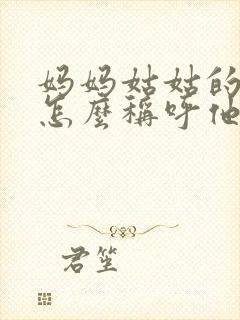 妈妈姑姑的
怎麼稱呼他
君笙